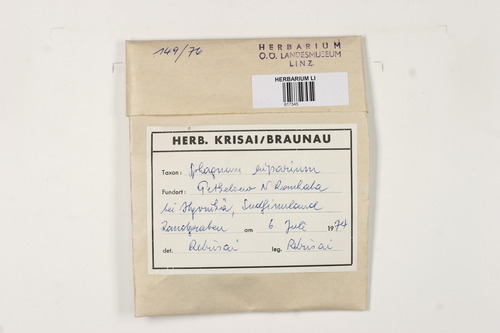 149/76
HERBARIUM
O.Ö. LANDESMUSEUM
LINZ
HERBARIUM LI
617345
HERB. KRISAI/BRAUNAU
Taxon: Sphagnum riparium
Fundort: Petkelsuo N Rankala
bei Hyvinkää, Südfinnland
Randgraben am 6. Juli 1974
det. RKrisai leg. RKrisai